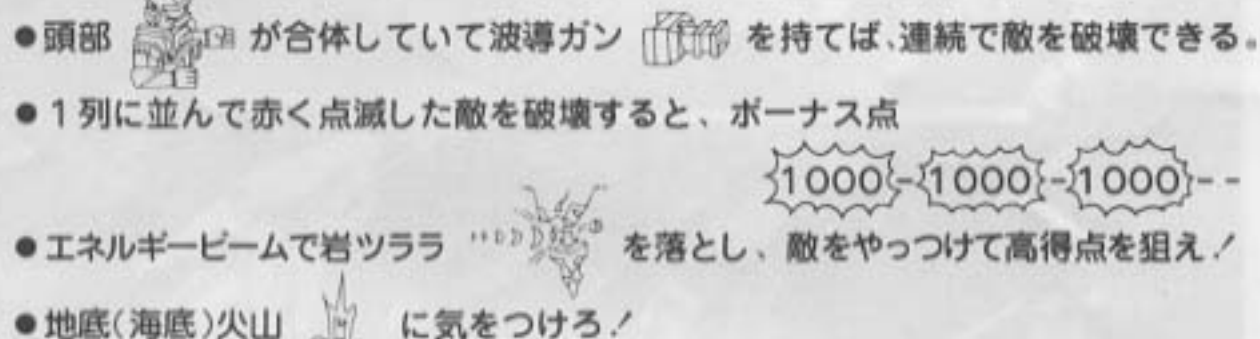 ●頭部 が合体していて波導ガン を持てば、連続で敵を破壊できる。
●1列に並んで赤く点滅した敵を破壊すると、ボーナス点
1000-1000-1000--
●エネルギービームで岩ツララ を落とし、敵をやっつけて高得点を狙え!
●地底(海底)火山 に気をつけろ!